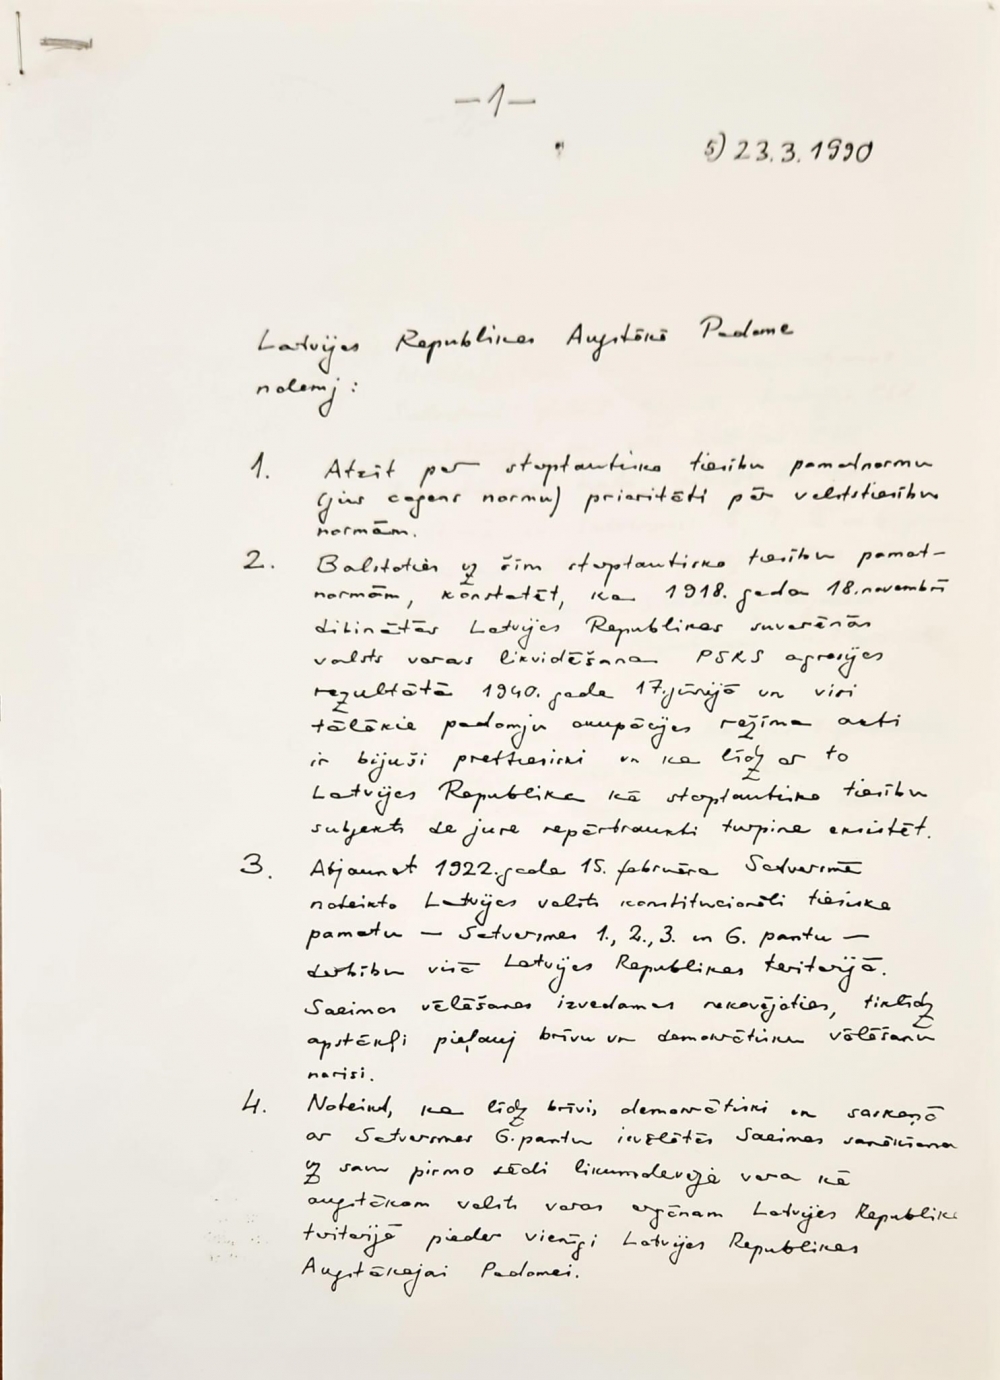 —1—
5) 23.3.1990
Latvijas Republikas Augstākā Padome
nolemj:
1. Atzīt par starptautisko tiesību pamatnormu
(jus cogens normu) prioritāti pār valststiesību
normām.
2. Balstoties uz šīm starptautisko tiesību pamat-
normām, konstatēt, ka 1918. gada 18. novembrī
dibinātās Latvijas Republikas suverēnās
valsts varas likvidēšana PSRS agresijas
rezultātā 1940. gada 17. jūnijā un visi
tālākie padomju okupācijas režīma akti
ir bijuši prettiesiski un ka līdz ar to
Latvijas Republika kā starptautisko tiesību
subjekts de jure nepārtraukti turpina eksistēt.
3. Atjaunot 1922. gada 15. februāra Satversmē
noteikto Latvijas valsts konstitucionāli tiesisko
pamatu — Satversmes 1., 2., 3. un 6. pantu —
darbību visā Latvijas Republikas teritorijā.
Saeimas vēlēšanas izvedamas nekavējoties, tiklīdz
apstākļi pieļauj brīvu un demokrātisku vēlēšanu
norisi.
4. Noteikt, ka līdz brīvi, demokrātiski un saskaņā
ar Satversmes 6. pantu ievēlētās Saeimas sanākšanai
uz savu pirmo sēdi likumdevēja vara kā
augstākam valsts varas orgānam Latvijas Republikas
teritorijā pieder vienīgi Latvijas Republikas
Augstākajai Padomei.